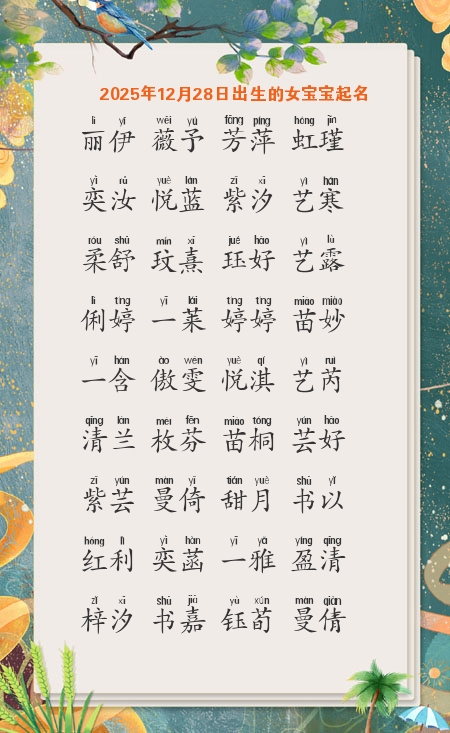 2025年12月28日出生的女宝宝起名
lì yī wēi yǔ fāng píng hóng jǐn
丽伊 薇予 芳萍 虹瑾
yì rǔ yuè lán zǐ xī yì hán
奕汝 悦蓝 紫汐 艺寒
róu shū mín xī jué hǎo yì lù
柔舒 玟熹 珏好 艺露
lì tíng yī lái tíng tíng miáo miào
俐婷 一莱 婷婷 苗妙
yī hán ào wén yuè qí yì ruì
一含 傲雯 悦淇 艺芮
qīng lán méi fēn miáo tóng yún hǎo
清兰 枚芬 苗桐 芸好
zǐ yún màn yǐ tián yuè shū yǐ
紫芸 曼倚 甜月 书以
hóng lì yì hàn yī yǎ yíng qīng
红利 奕菡 一雅 盈清
zǐ xī shū jiā yù xún màn qiàn
梓汐 书嘉 钰荀 曼倩